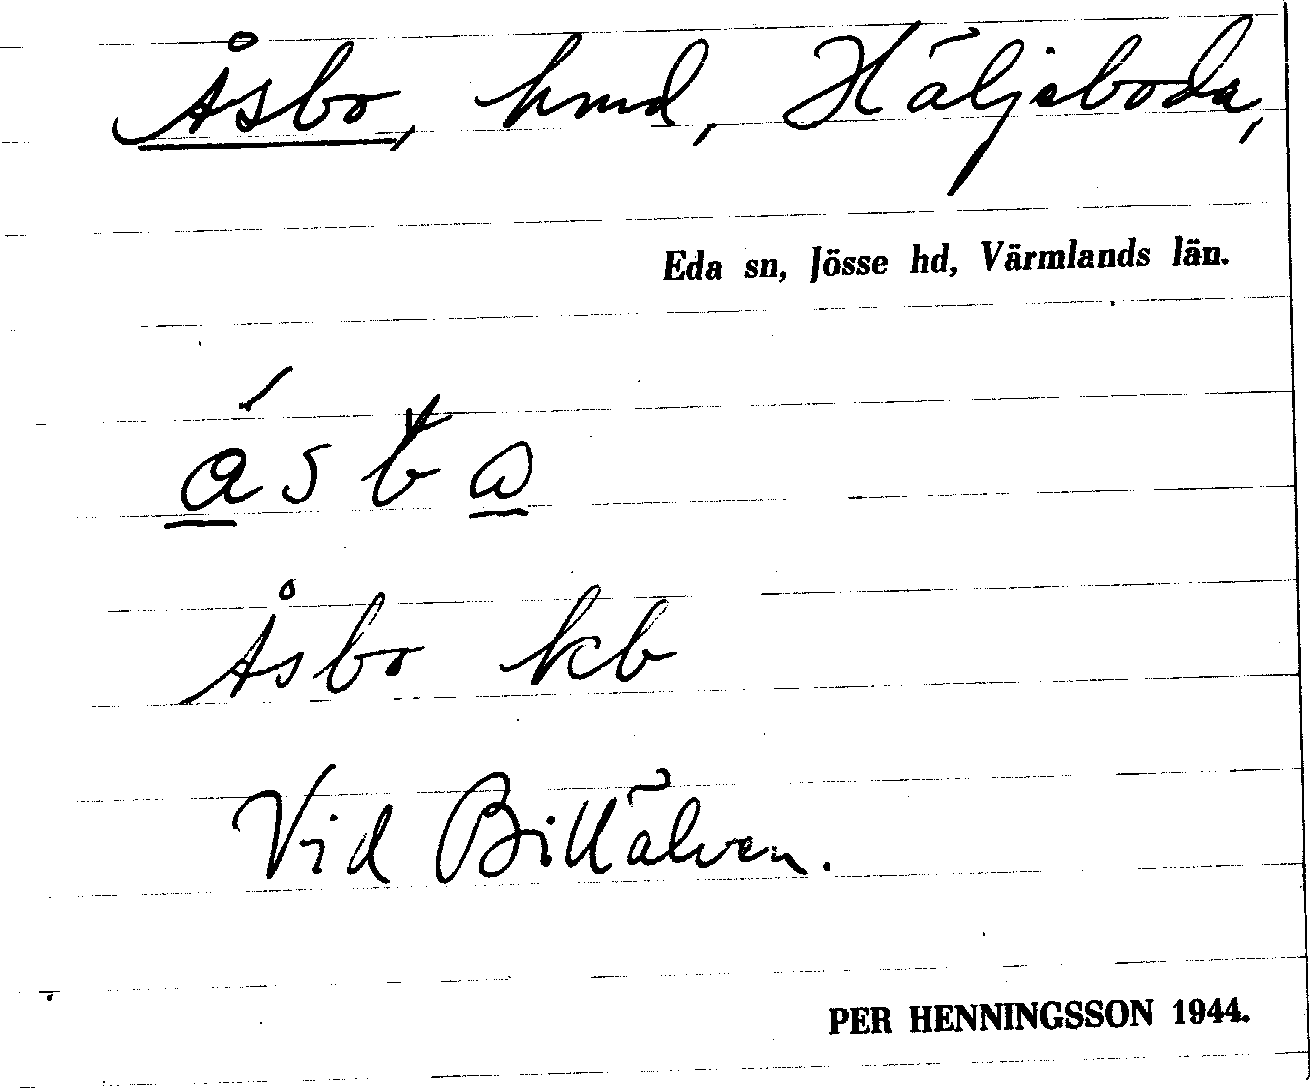 Åsbo, hmd, Häljeboda,
Eda sn, Jösse hd, Värmlands län.
åsbo
Åsbo kb
Vid Billälven.
PER HENNINGSSON 1944.